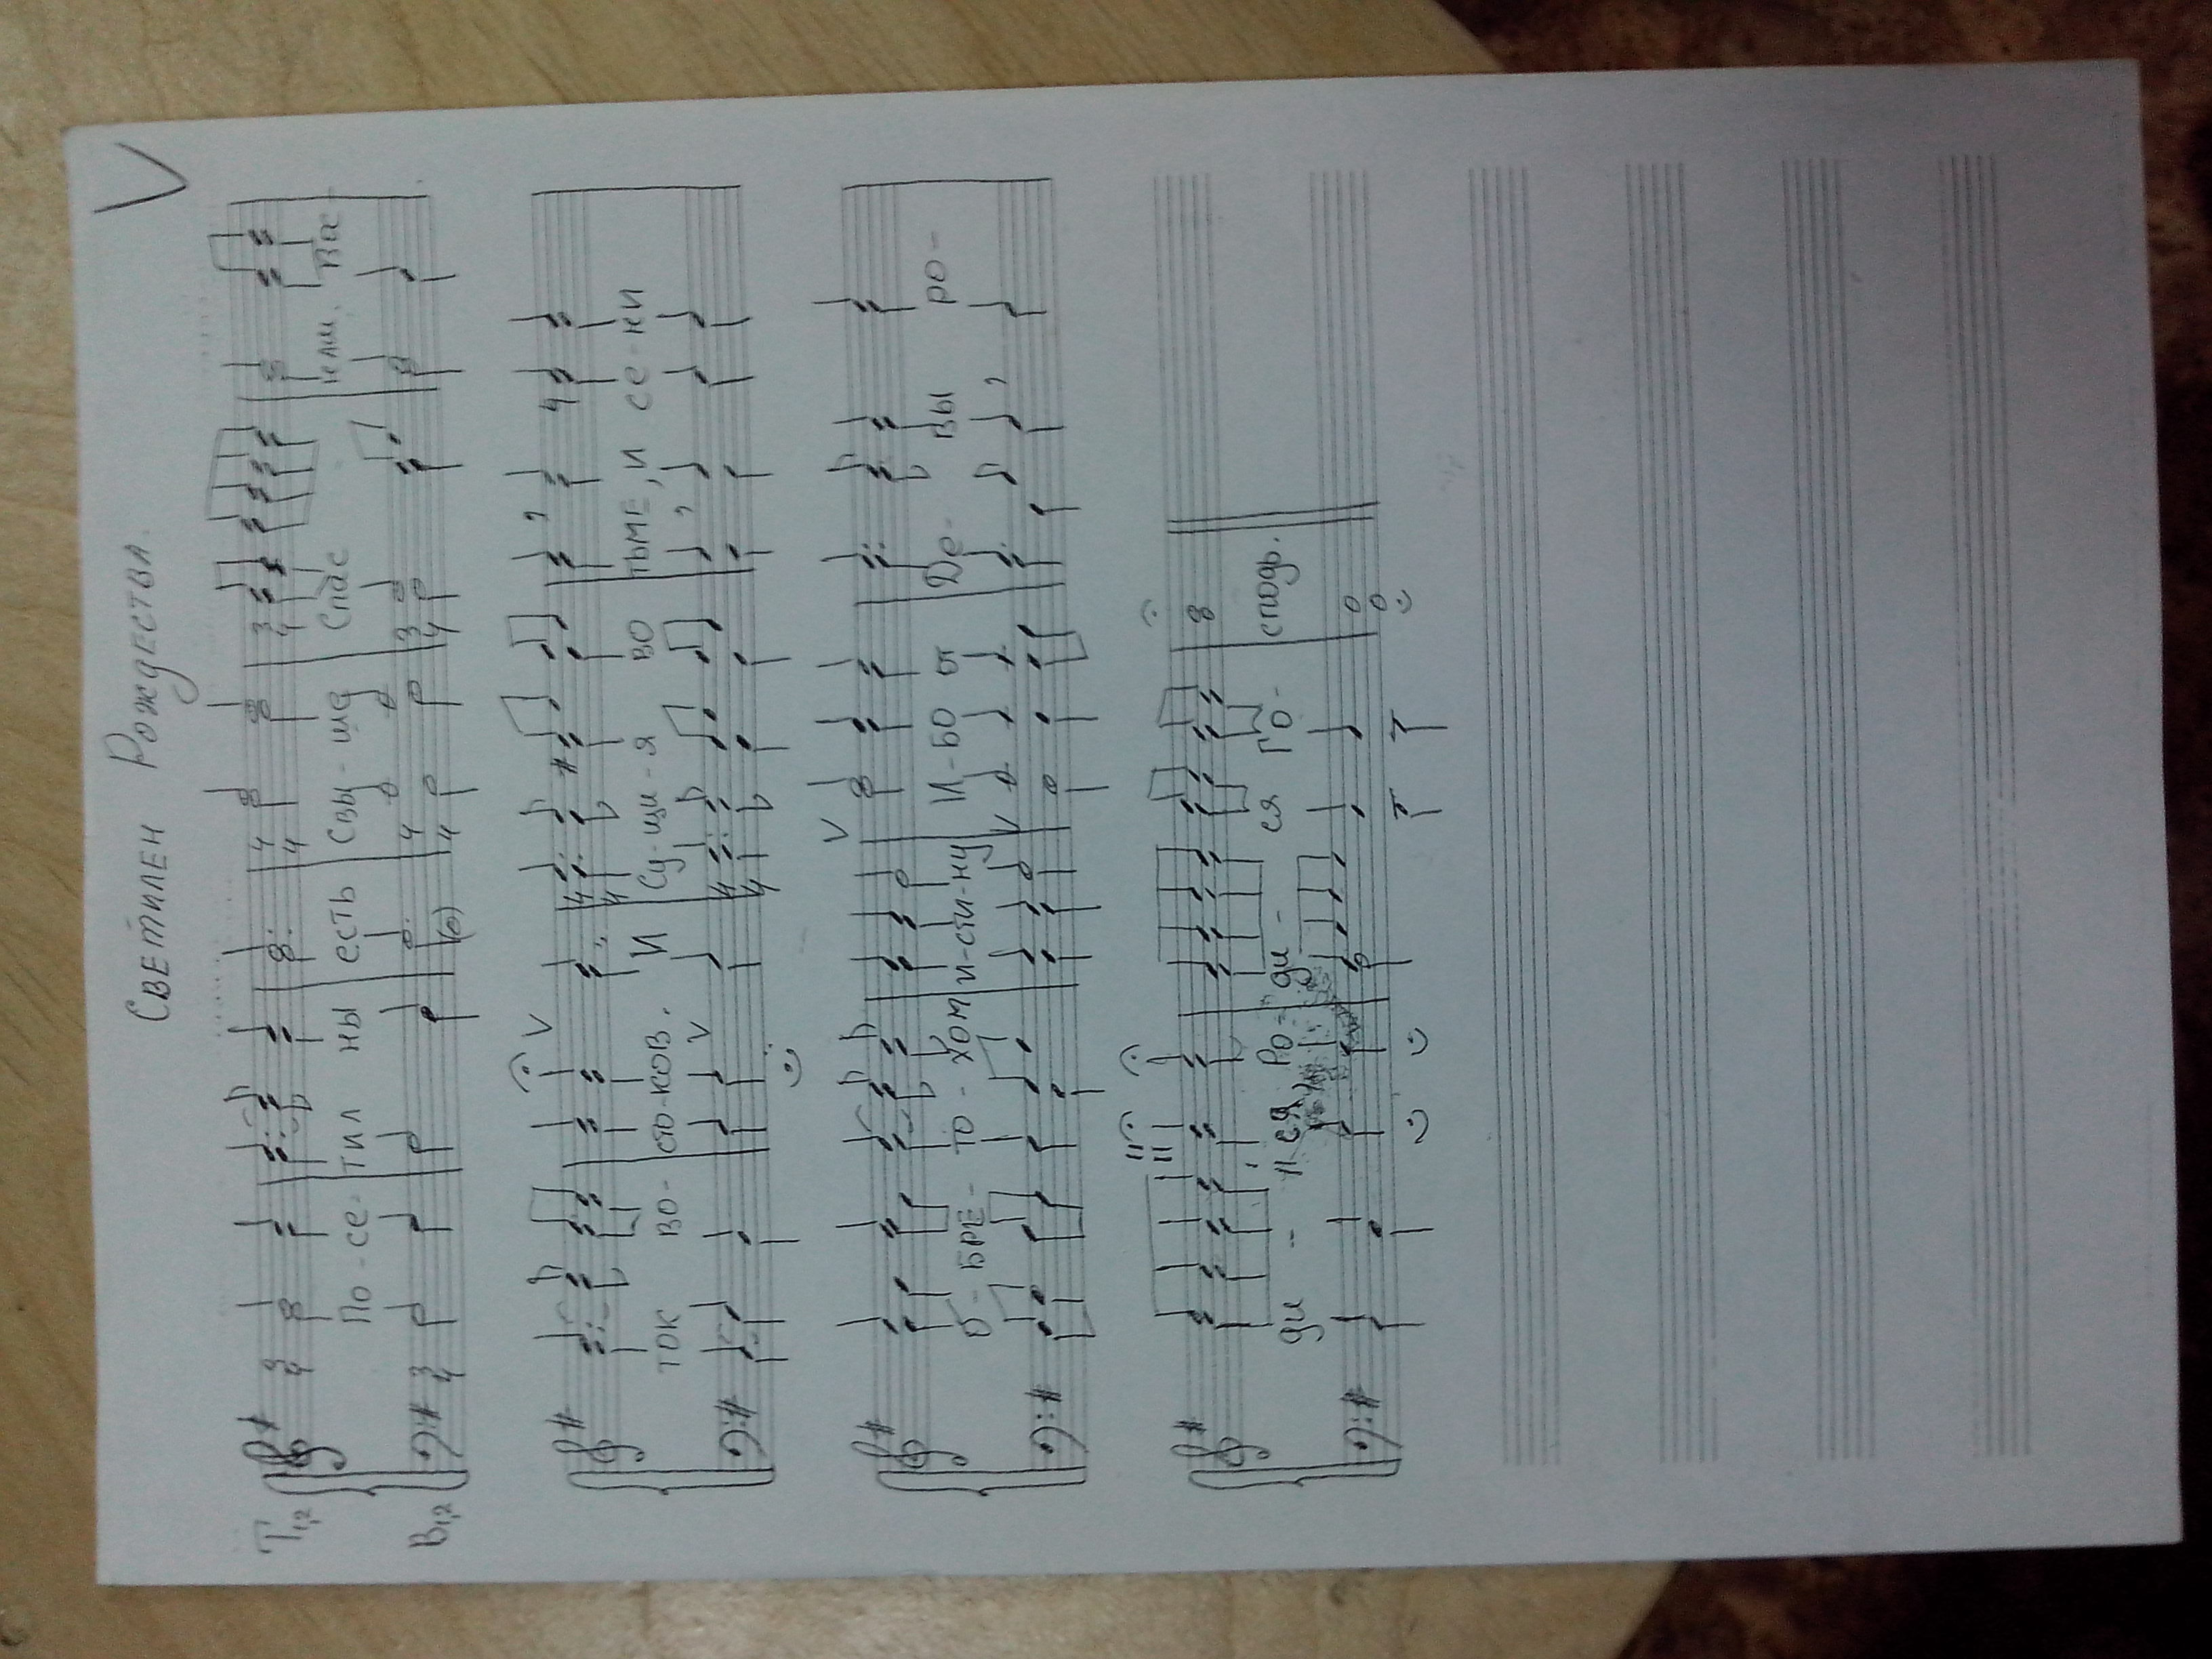 V
Светилен Рождества.
T1,2
По - се - тил ны есть Свы - ше Спас
B1,2
ток во - сто - ков. И Су - щи - я во тьме, и се - ни
О - бре - то - хом и - сти - ну И - бо от Де - вы ро -
ди - ся Ро - ди - ся Го - сподь.